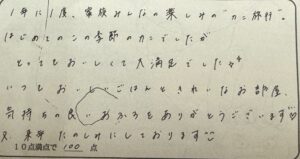 1年に1度、家族みんなの楽しみの"カニ旅行"。
はじめてのこの季節のカニでしたが
とってもおいしくて大満足でした
いつもおいしいごはんときれいなお部屋、
気持ちの良いおふろをありがとうございます♡
又、来年たのしみにしております
10点満点で 100 点